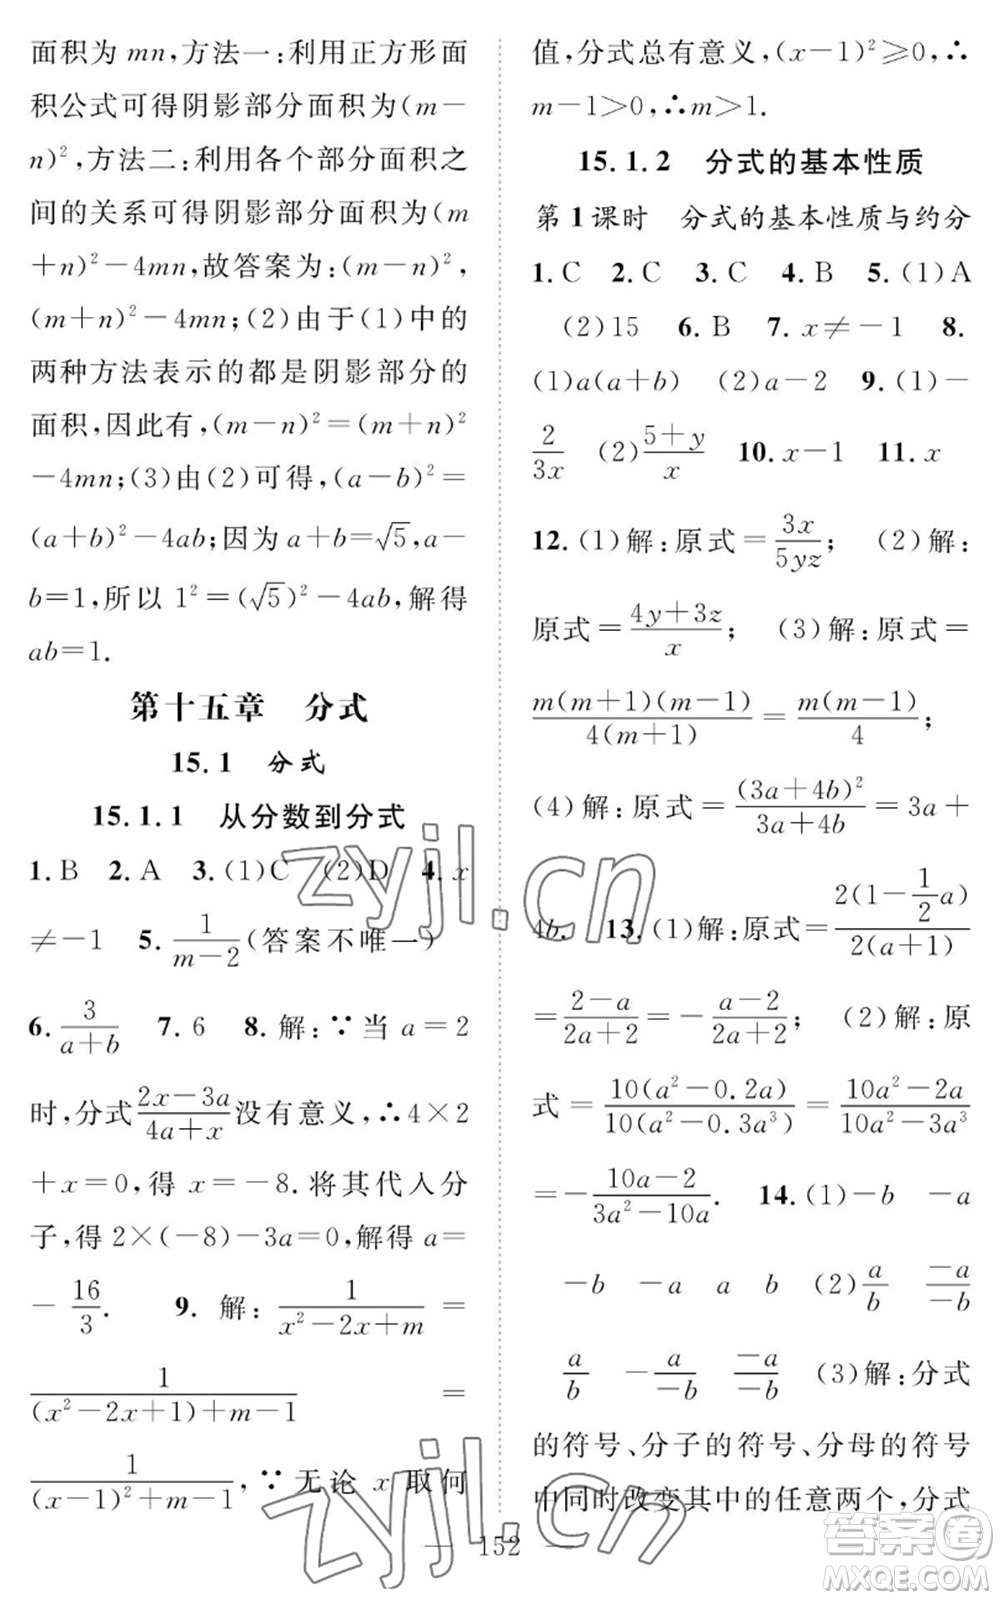 面积为 mn,方法一:利用正方形面
积公式可得阴影部分面积为(m-
n)²,方法二:利用各个部分面积之
间的关系可得阴影部分面积为(m
+n)²-4mn,故答案为:(m-n)²,
(m+n)²-4mn;(2)由于(1)中的
两种方法表示的都是阴影部分的
面积,因此有,(m-n)²=(m+n)²
-4mn;(3)由(2)可得,(a-b)²=
(a+b)²-4ab;因为a+b=√5,a-
b=1,所以 1²=(√5)²-4ab,解得
ab=1.
第十五章 分式
15.1 分式
15.1.1 从分数到分式
1.B 2.A 3.(1)C (2)D 4.x
≠-1 5. 1/(m-2)(答案不唯一)
6. 3/(a+b) 7.6 8.解:∵当 a=2
时,分式(2x-3a)/(4a+x)没有意义,∴4×2
+x=0,得 x=-8.将其代入分
子,得 2×(-8)-3a=0,解得 a=
- 16/3. 9. 解: 1/(x²-2x+m) =
1/((x²-2x+1)+m-1) =
1/((x-1)²+m-1), ∵ 无论 x 取何
值,分式总有意义,(x-1)²≥0,∴
m-1>0,∴m>1.
15.1.2 分式的基本性质
第1课时 分式的基本性质与约分
1.C 2.C 3.C 4.B 5.(1)A
(2)15 6.B 7.x≠-1 8.
(1)a(a+b) (2)a-2 9.(1)-
2/(3x) (2)(5+y)/x 10.x-1 11.x
12.(1)解:原式=3x/(5yz); (2)解:
原式=(4y+3z)/x; (3)解:原式=
m(m+1)(m-1)/(4(m+1)) = m(m-1)/4;
(4)解:原式=(3a+4b)²/(3a+4b)=3a+
4b. 13.(1)解:原式=2(1-1/2 a)/(2(a+1))
=(2-a)/(2a+2)=-(a-2)/(2a+2); (2)解:原
式=10(a²-0.2a)/(10(a²-0.3a³))=(10a²-2a)/(10a²-3a³)
=-(10a-2)/(3a²-10a). 14.(1)-b -a
-b -a a b (2)a/b -a/-b
a/b -a/-b -a/-b (3)解:分式
的符号、分子的符号、分母的符号
中同时改变其中的任意两个,分式
— 152 —
zyjl.cn
zyjl.cn
答案卷
MXQE.COM